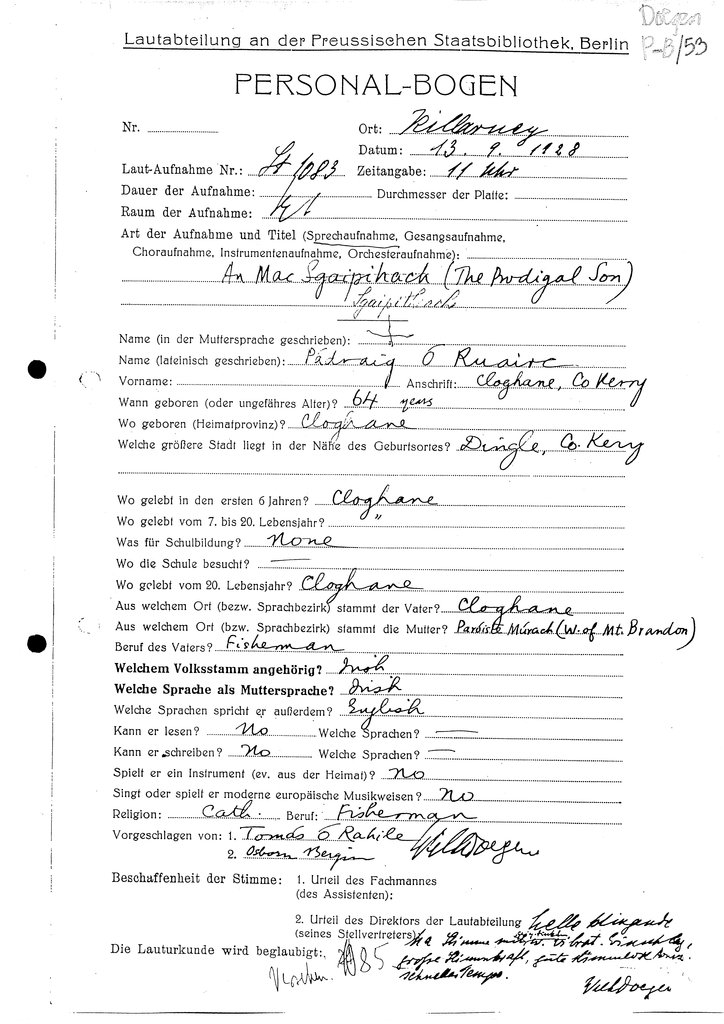 Doegen
P-B/53
Lautabteilung an der Preussischen Staatsbibliothek, Berlin
PERSONAL-BOGEN
Nr. Ort: Killarney
Datum: 13. 9. 1928
Laut-Aufnahme Nr.: 1083 Zeitangabe: 11 Uhr
Dauer der Aufnahme: Durchmesser der Platte:
Raum der Aufnahme:
Art der Aufnahme und Titel (Sprechaufnahme, Gesangsaufnahme,
Choraufnahme, Instrumentenaufnahme, Orchesteraufnahme):
An Mac Sgaipihach (The Prodigal Son)
Sgaipithach
Name (in der Muttersprache geschrieben):
Name (lateinisch geschrieben): Pádraig Ó Ruairc
Vorname: Anschrift: Cloghane, Co Kerry
Wann geboren (oder ungefähres Alter)? 64 years
Wo geboren (Heimatprovinz)? Cloghane
Welche größere Stadt liegt in der Nähe des Geburtsortes? Dingle, Co. Kerry
Wo gelebt in den ersten 6 Jahren? Cloghane
Wo gelebt vom 7. bis 20. Lebensjahr? "
Was für Schulbildung? None
Wo die Schule besucht? —
Wo gelebt vom 20. Lebensjahr? Cloghane
Aus welchem Ort (bezw. Sprachbezirk) stammt der Vater? Cloghane
Aus welchem Ort (bzw. Sprachbezirk) stammt die Mutter? Paróiste Múrach (W. of Mt. Brandon)
Beruf des Vaters? Fisherman
Welchem Volksstamm angehörig? Irish
Welche Sprache als Muttersprache? Irish
Welche Sprachen spricht er außerdem? English
Kann er lesen? No Welche Sprachen? —
Kann er schreiben? No Welche Sprachen? —
Spielt er ein Instrument (ev. aus der Heimat)? No
Singt oder spielt er moderne europäische Musikweisen? No
Religion: Cath. Beruf: Fisherman
Vorgeschlagen von: 1. Tomás Ó Rahile
2. Osborn Bergin Wilh Doegen
Beschaffenheit der Stimme: 1. Urteil des Fachmannes
(des Assistenten):
2. Urteil des Direktors der Lautabteilung helle klingende
(seines Stellvertreters) Stimme mit
Die Lauturkunde wird beglaubigt: 1085 große Stimmkraft, gute
schnelles Tempo.
Wilh Doegen